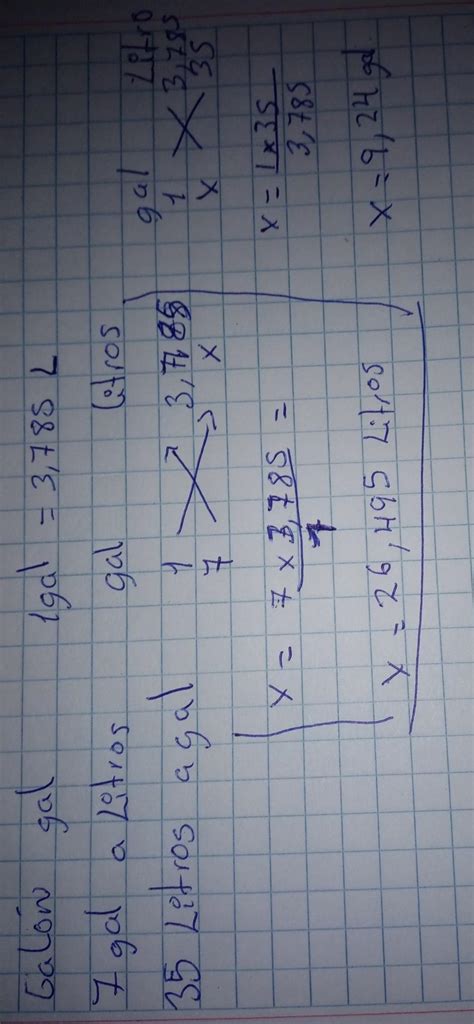 Galón gal 1gal = 3,785 L
7 gal a Litros
35 Litros a gal
gal litros
1 3,785
7 x
x = 7 x 3,785 =
1
x = 26,495 Litros
gal Litro
1 3,785
x 35
x = 1x35
3,785
x = 9,24 gal